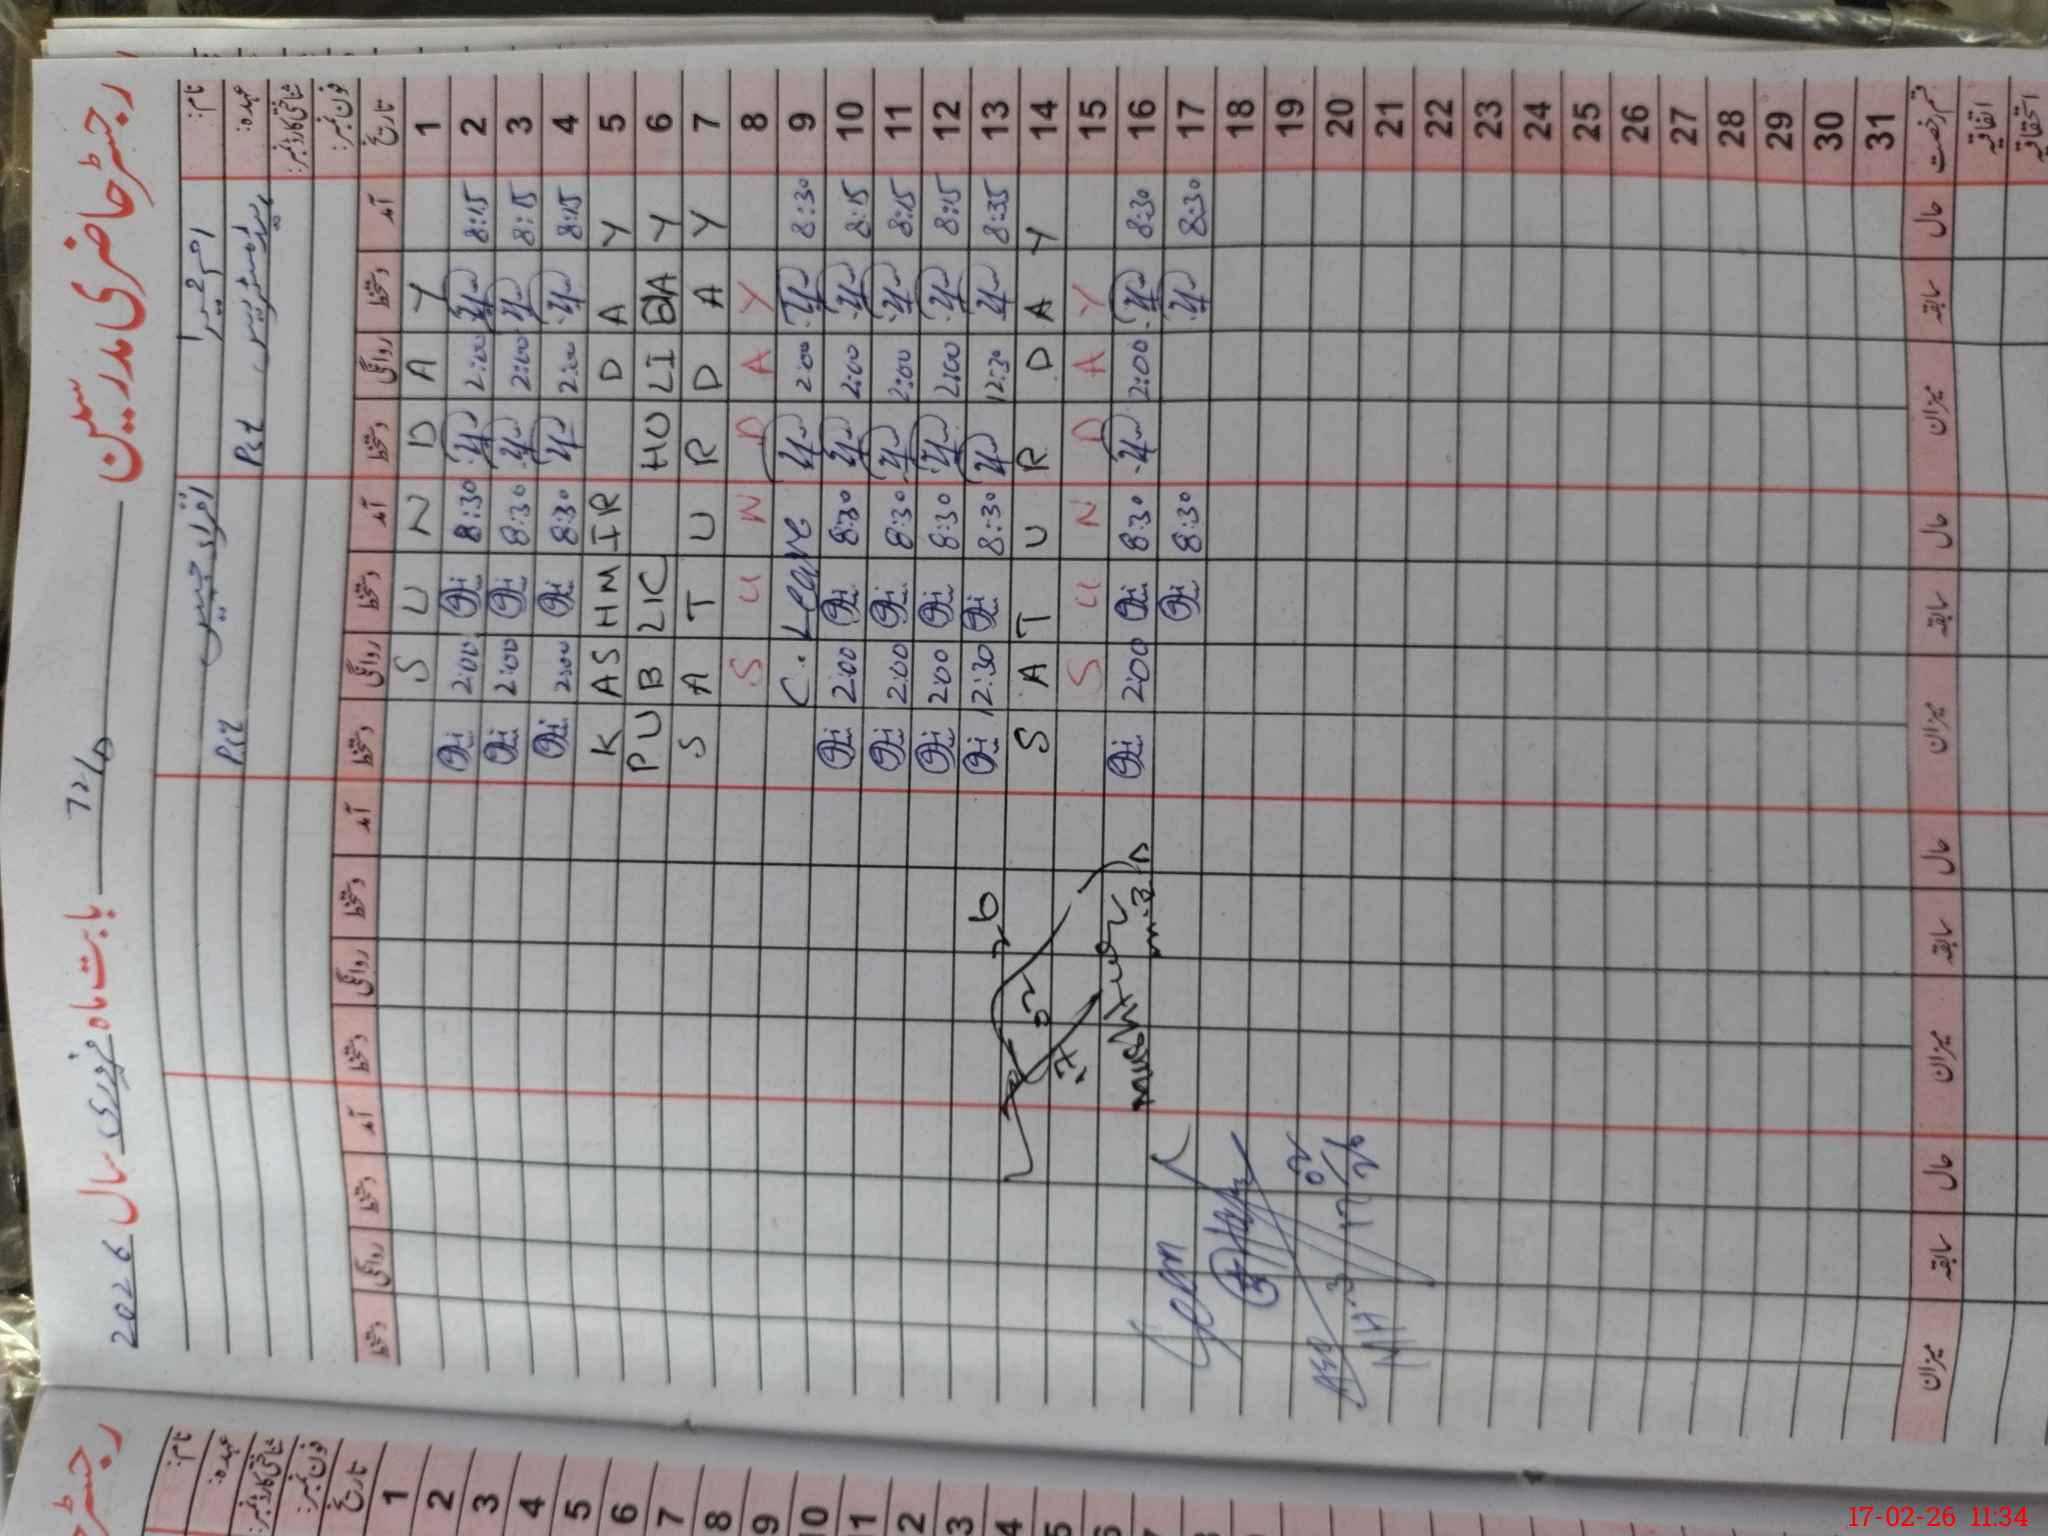 رجسٹر حاضری مدرسین 72/D بابت ماہ فروری سال 2026
نام:
عہدہ: ہیڈ مسٹریس Pst Pst
شناختی کارڈ نمبر:
فون نمبر:
تاریخ آمد دستخط روانگی دستخط آمد دستخط روانگی دستخط آمد دستخط روانگی دستخط آمد دستخط روانگی دستخط
1 S U N D A Y
2 8:15 2:00 8:30 2:00
3 8:15 2:00 8:30 2:00
4 8:15 2:00 8:30 2:00
5 KASHMIR DAY
6 PUBLIC HOLIDAY
7 S A T U R D A Y
8 S U N D A Y
9 8:30 2:00 C. Leave
10 8:15 2:00 8:30 2:00
11 8:15 2:00 8:30 2:00
12 8:15 2:00 8:30 2:00
13 8:35 12:30 8:30 12:30
14 S A T U R D A Y
15 S U N D A Y
16 8:30 2:00 8:30 2:00
17 8:30 8:30
18
19
20
21
22
23
24
25
26
27
28
29
30
31
قسم رخصت حال سابقہ میزان حال سابقہ میزان حال سابقہ میزان حال سابقہ میزان
اتفاقیہ
استحقاقیہ
Seen
17/02/26
رجسٹر
نام:
عہدہ:
شناختی کارڈ نمبر:
فون نمبر:
تاریخ
1
2
3
4
5
6
7
8
9
10
11
17-02-26 11:34